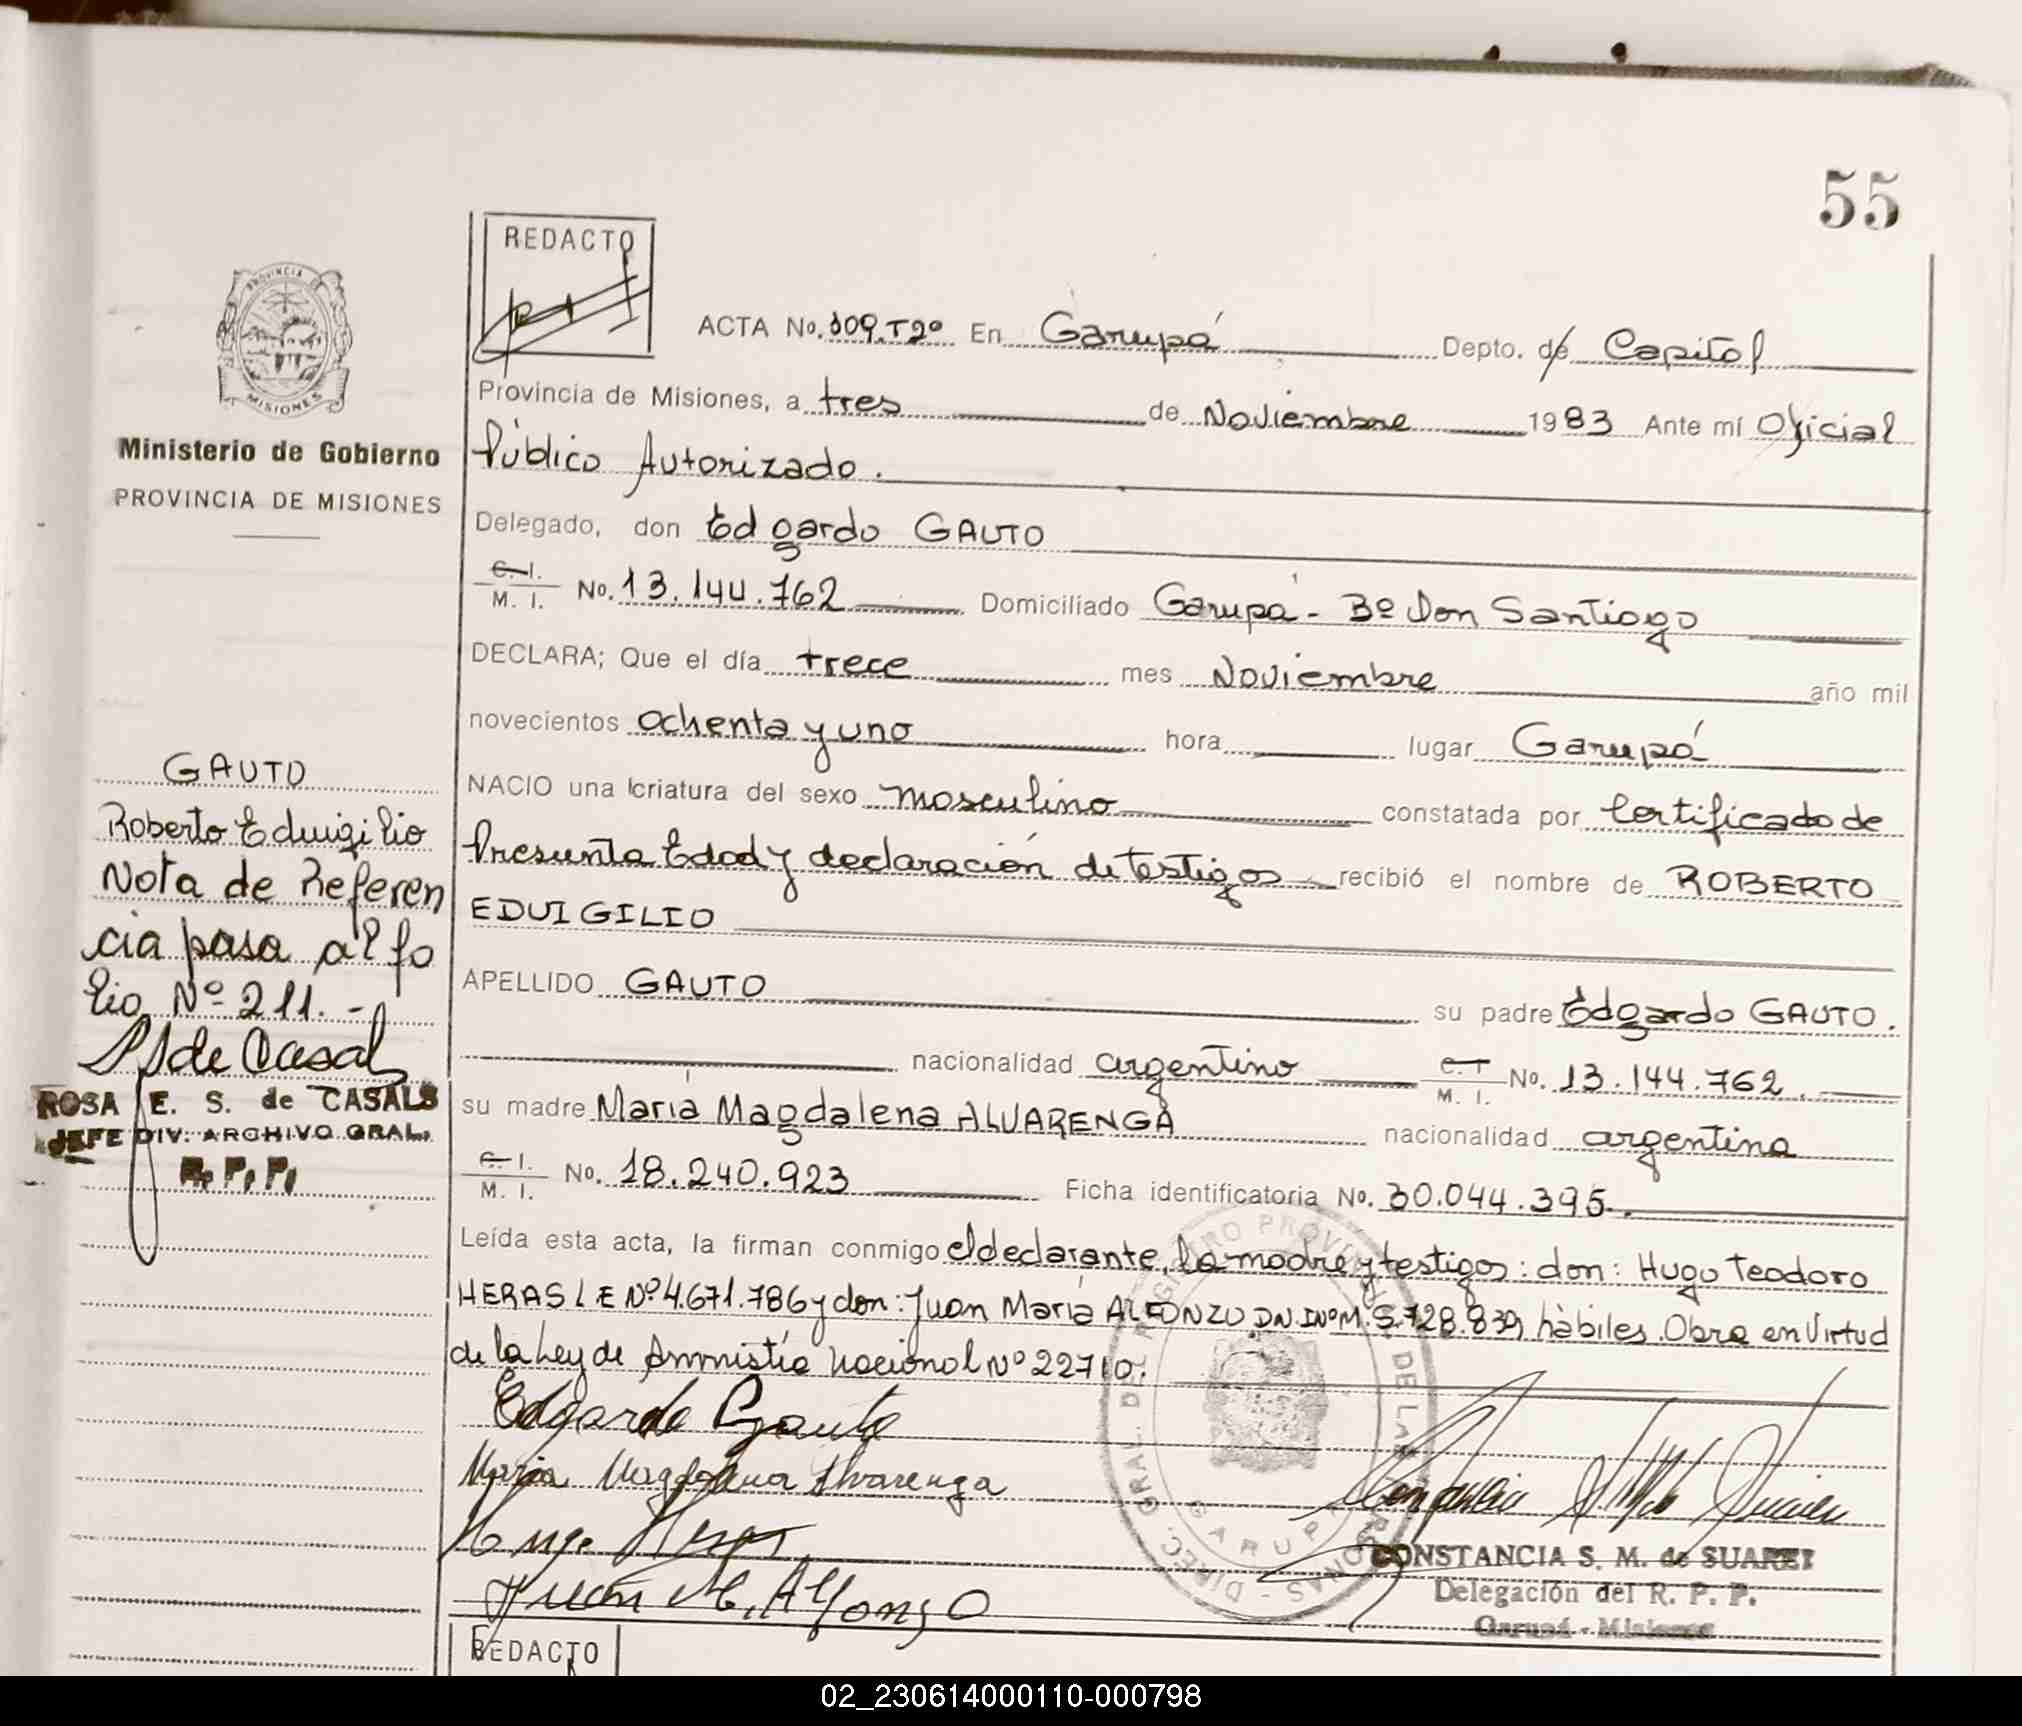 55
REDACTO
ACTA No. 109.T2º En Garupá Depto. de Capital
Provincia de Misiones, a tres de Noviembre 1983 Ante mí Oficial
Público Autorizado.
Delegado, don Edgardo GAUTO
C. I.
M. I. No. 13.144.762 Domiciliado Garupá - Bº Don Santiago
DECLARA; Que el día trece mes Noviembre año mil
novecientos ochenta y uno hora lugar Garupá
NACIO una criatura del sexo masculino constatada por Certificado de
Presunta Edad y declaración de testigos recibió el nombre de ROBERTO
EDUIGILIO
APELLIDO GAUTO su padre Edgardo GAUTO.
nacionalidad argentino C. I.
M. I. No. 13.144.762.
su madre María Magdalena ALVARENGA nacionalidad argentina
C. I.
M. I. No. 18.240.923 Ficha identificatoria No. 30.044.395.
Leída esta acta, la firman conmigo el declarante, la madre y testigos: don: Hugo Teodoro
HERAS L E Nº 4.671.786 y don: Juan María ALFONZO DN.INºM. 5.728.839, hábiles. Obra en Virtud
de la Ley de Amnistía Nacional Nº 22710.
Edgardo Gauto
Maria Magdalena Alvarenga
Hugo Heras
Juan M. Alfonzo
CONSTANCIA S. M. de SUAREZ
Delegación del R. P. P.
Garupá - Misiones
DIREC. GRAL. DEL REGISTRO PROVINCIAL DE LAS PERSONAS -
GARUPA
REDACTO
PROVINCIA DE
MISIONES
Ministerio de Gobierno
PROVINCIA DE MISIONES
GAUTO
Roberto Eduigilio
Nota de Referen
cia pasa al fo
lio Nº 211.-
S de Casals
ROSA E. S. de CASALS
JEFE DIV. ARCHIVO GRAL.
R. P. P.
02_230614000110-000798